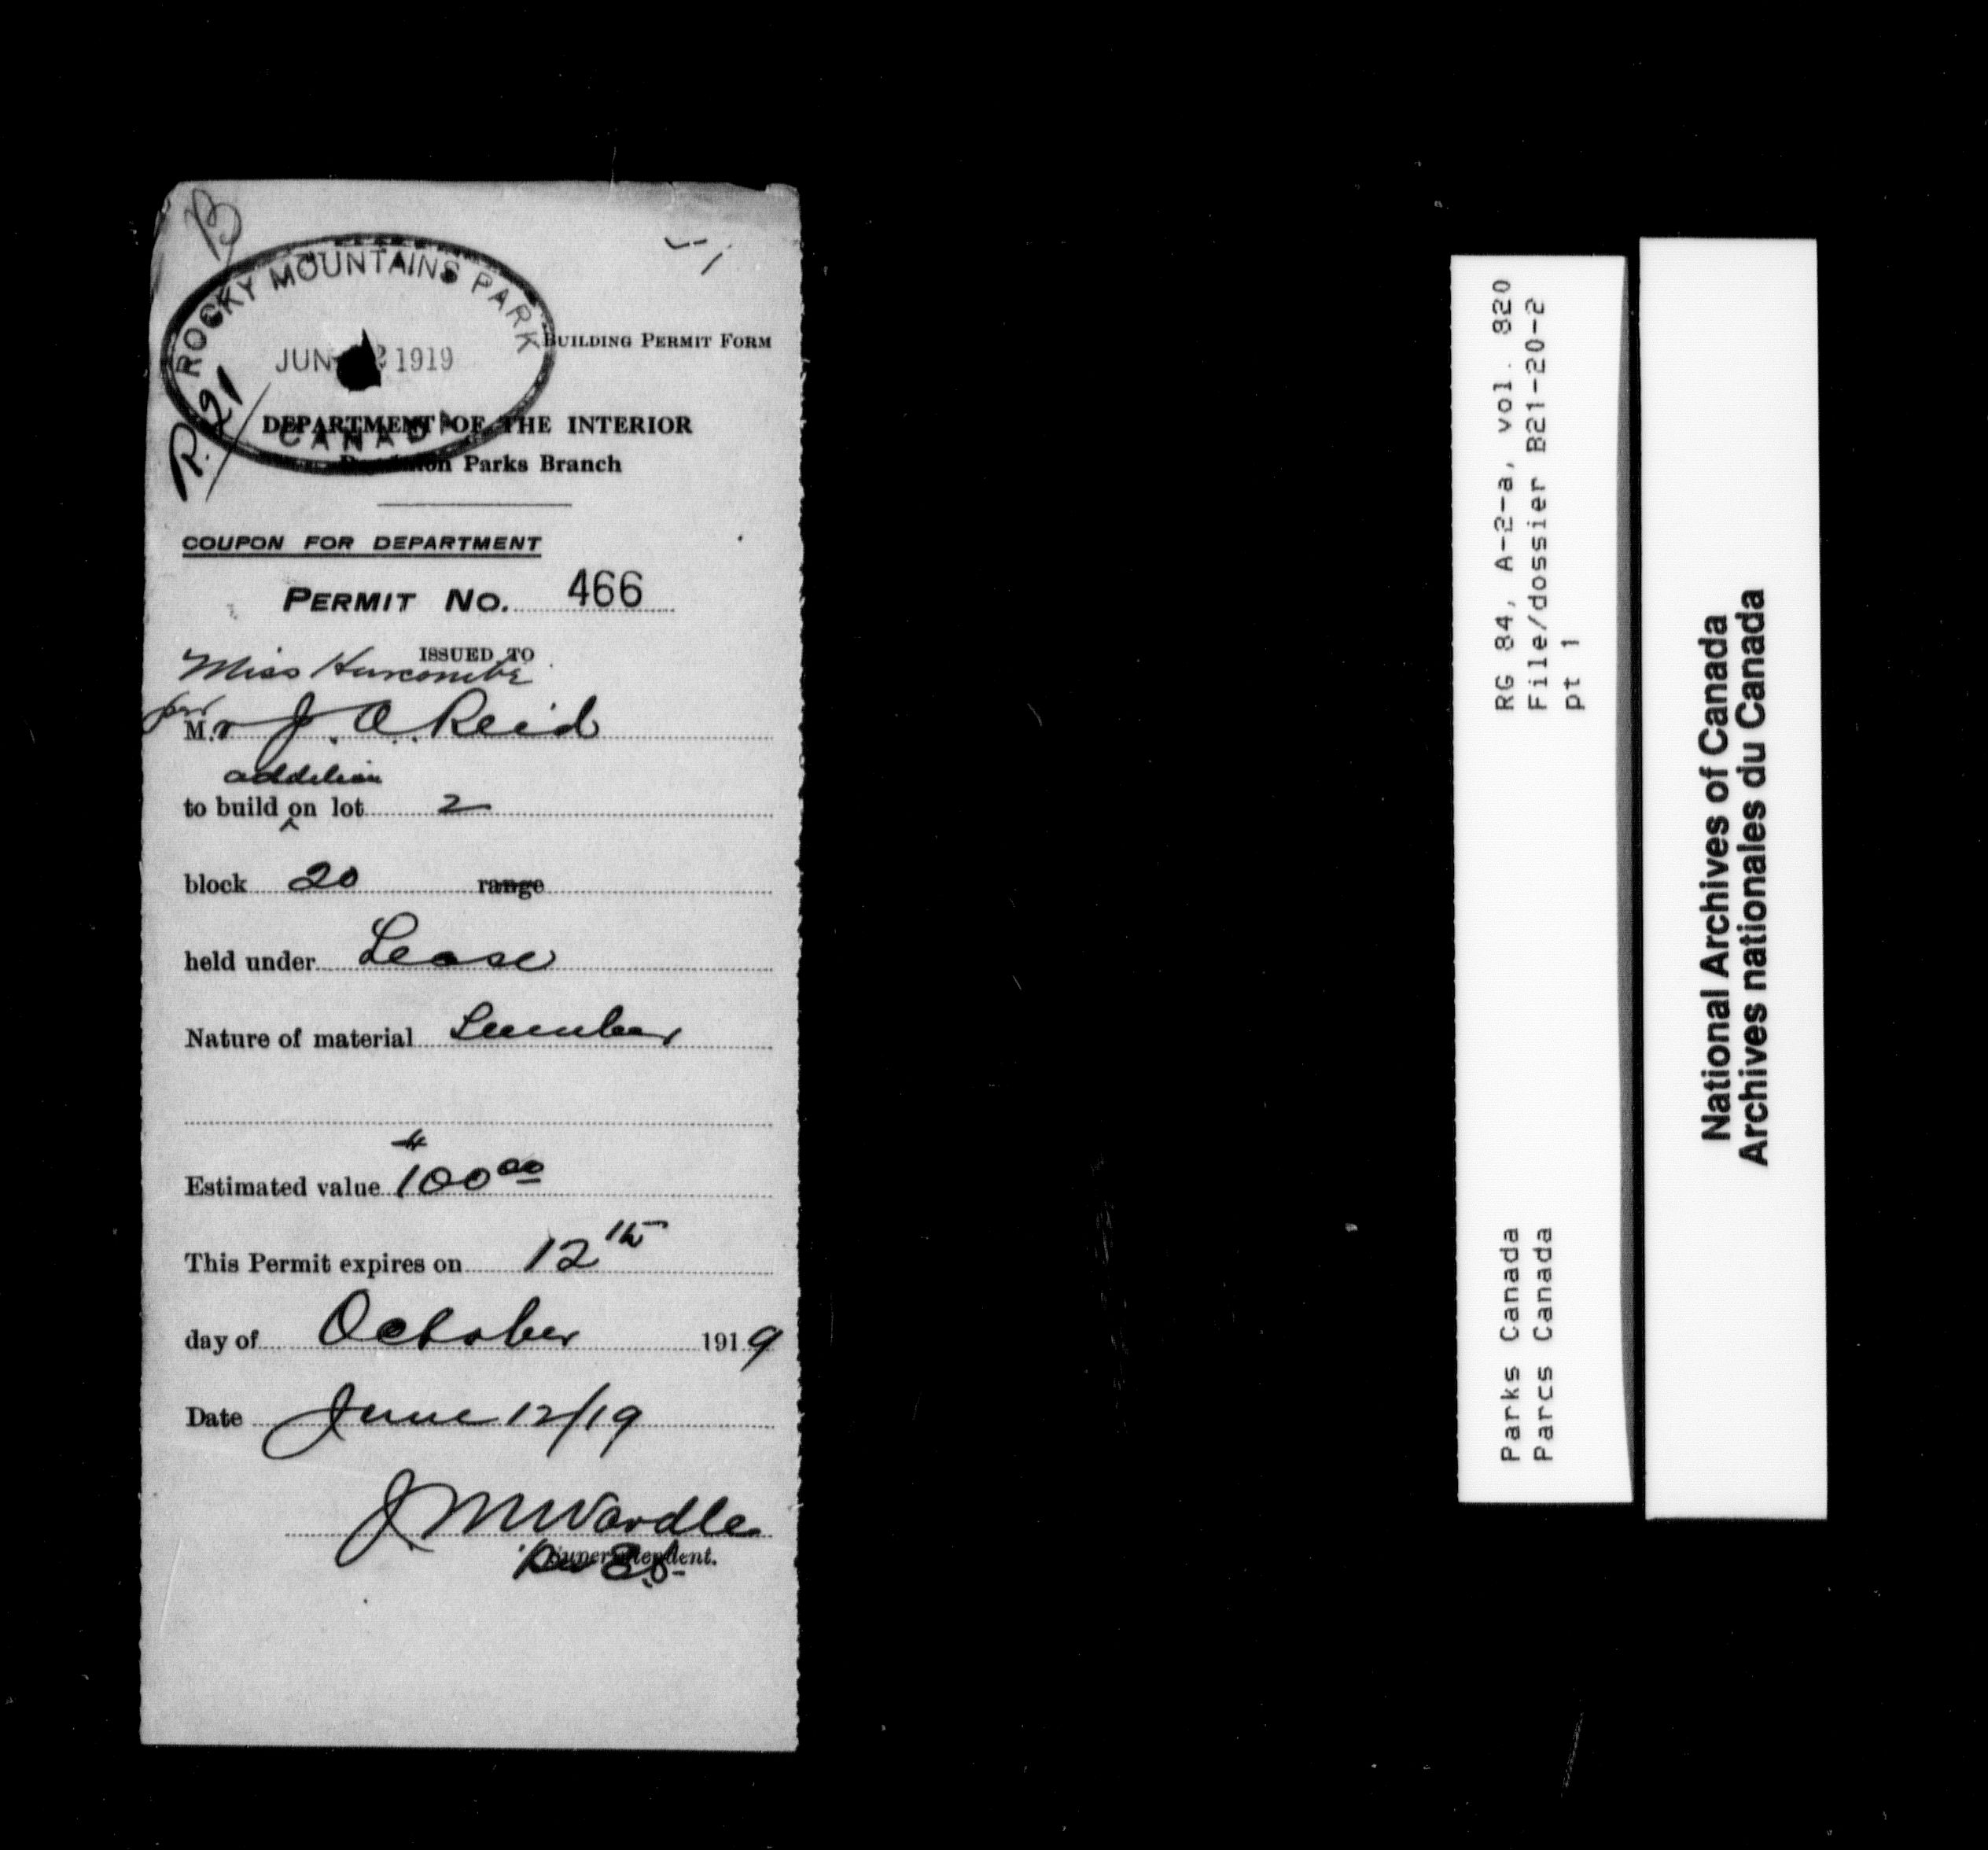 B
ROCKY MOUNTAINS PARK
JUN 12 1919
CANADA
R. 21
BUILDING PERMIT FORM
DEPARTMENT OF THE INTERIOR
Dominion Parks Branch
COUPON FOR DEPARTMENT
PERMIT No. 466
ISSUED TO
Miss Hurcombe
per
M.r J. A. Reid
addition
to build on lot 2
block 20 range
held under Lease
Nature of material Lumber
Estimated value $100.00
This Permit expires on 12th
day of October 1919
Date June 12/19
J M Wardle
Superintendent.
RG 84, A-2-a, vol. 820
File/dossier B21-20-2
pt 1
Parks Canada
Parcs Canada
National Archives of Canada
Archives nationales du Canada